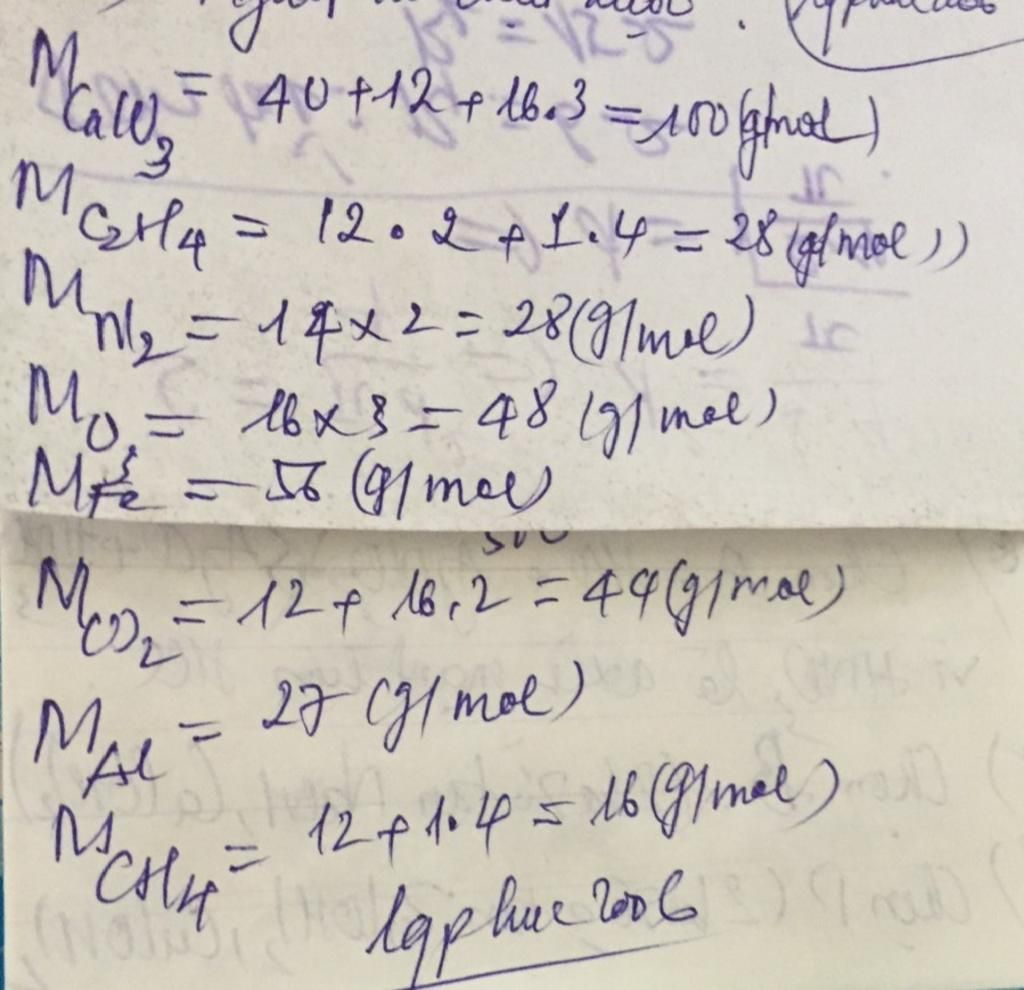 M CaCO3 = 40 + 12 + 16.3 = 100 (g/mol)
M C2H4 = 12 . 2 + 1.4 = 28 (g/mol))
M N2 = 14 x 2 = 28 (g/mol)
M O3 = 16 x 3 = 48 (g/mol)
M Fe = 56 (g/mol)
M CO2 = 12 + 16.2 = 44 (g/mol)
M Al = 27 (g/mol)
M CH4 = 12 + 1.4 = 16 (g/mol)
lqphuc2006